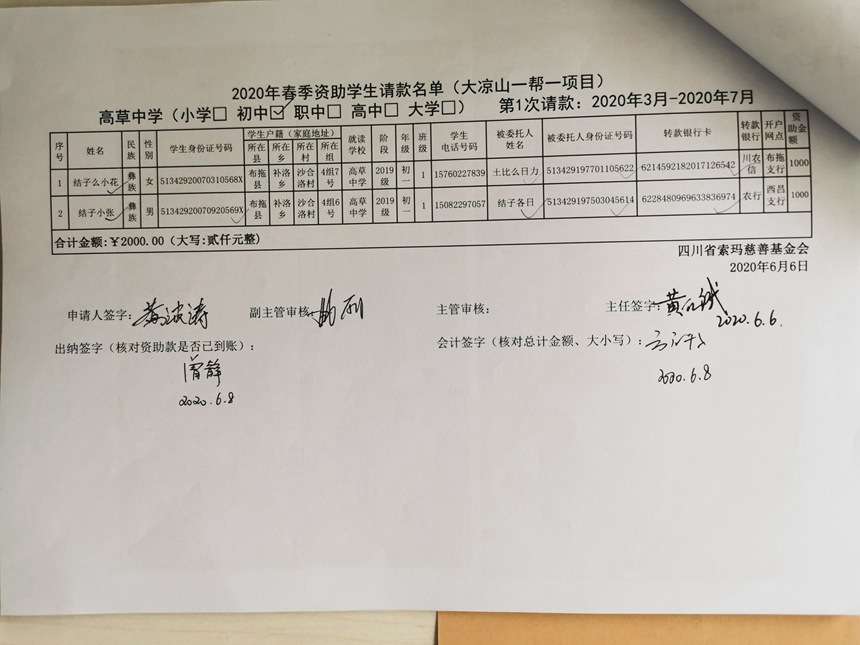 2020年春季资助学生请款名单（大凉山一帮一项目）
高草中学（小学□ 初中☑ 职中□ 高中□ 大学□） 第1次请款：2020年3月-2020年7月
序号 姓名 民族 性别 学生身份证号码 学生户籍（家庭地址） 就读学校 阶段 年级 班级 学生电话号码 被委托人姓名 被委托人身份证号码 转款银行卡 转款银行 开户网点 资助金额
所在县 所在乡 所在村 所在组
1 结子么小花 彝族 女 51342920070310568X 布拖县 补洛乡 沙合洛村 4组7号 高草中学 2019级 初一 1 15760227839 土比么日力 513429197701105622 6214592182017126542 川农信 布拖支行 1000
2 结子小张 彝族 男 51342920070920569X 布拖县 补洛乡 沙合洛村 4组6号 高草中学 2019级 初一 1 15082297057 结子各日 513429197503045614 6228480969633836974 农行 西昌支行 1000
合计金额:￥2000.00（大写:贰仟元整）
四川省索玛慈善基金会
2020年6月6日
申请人签字: 副主管审核: 主管审核: 主任签字:
2020.6.6.
出纳签字（核对资助款是否已到账）: 会计签字（核对总计金额、大小写）:
2020.6.8
2020.6.8